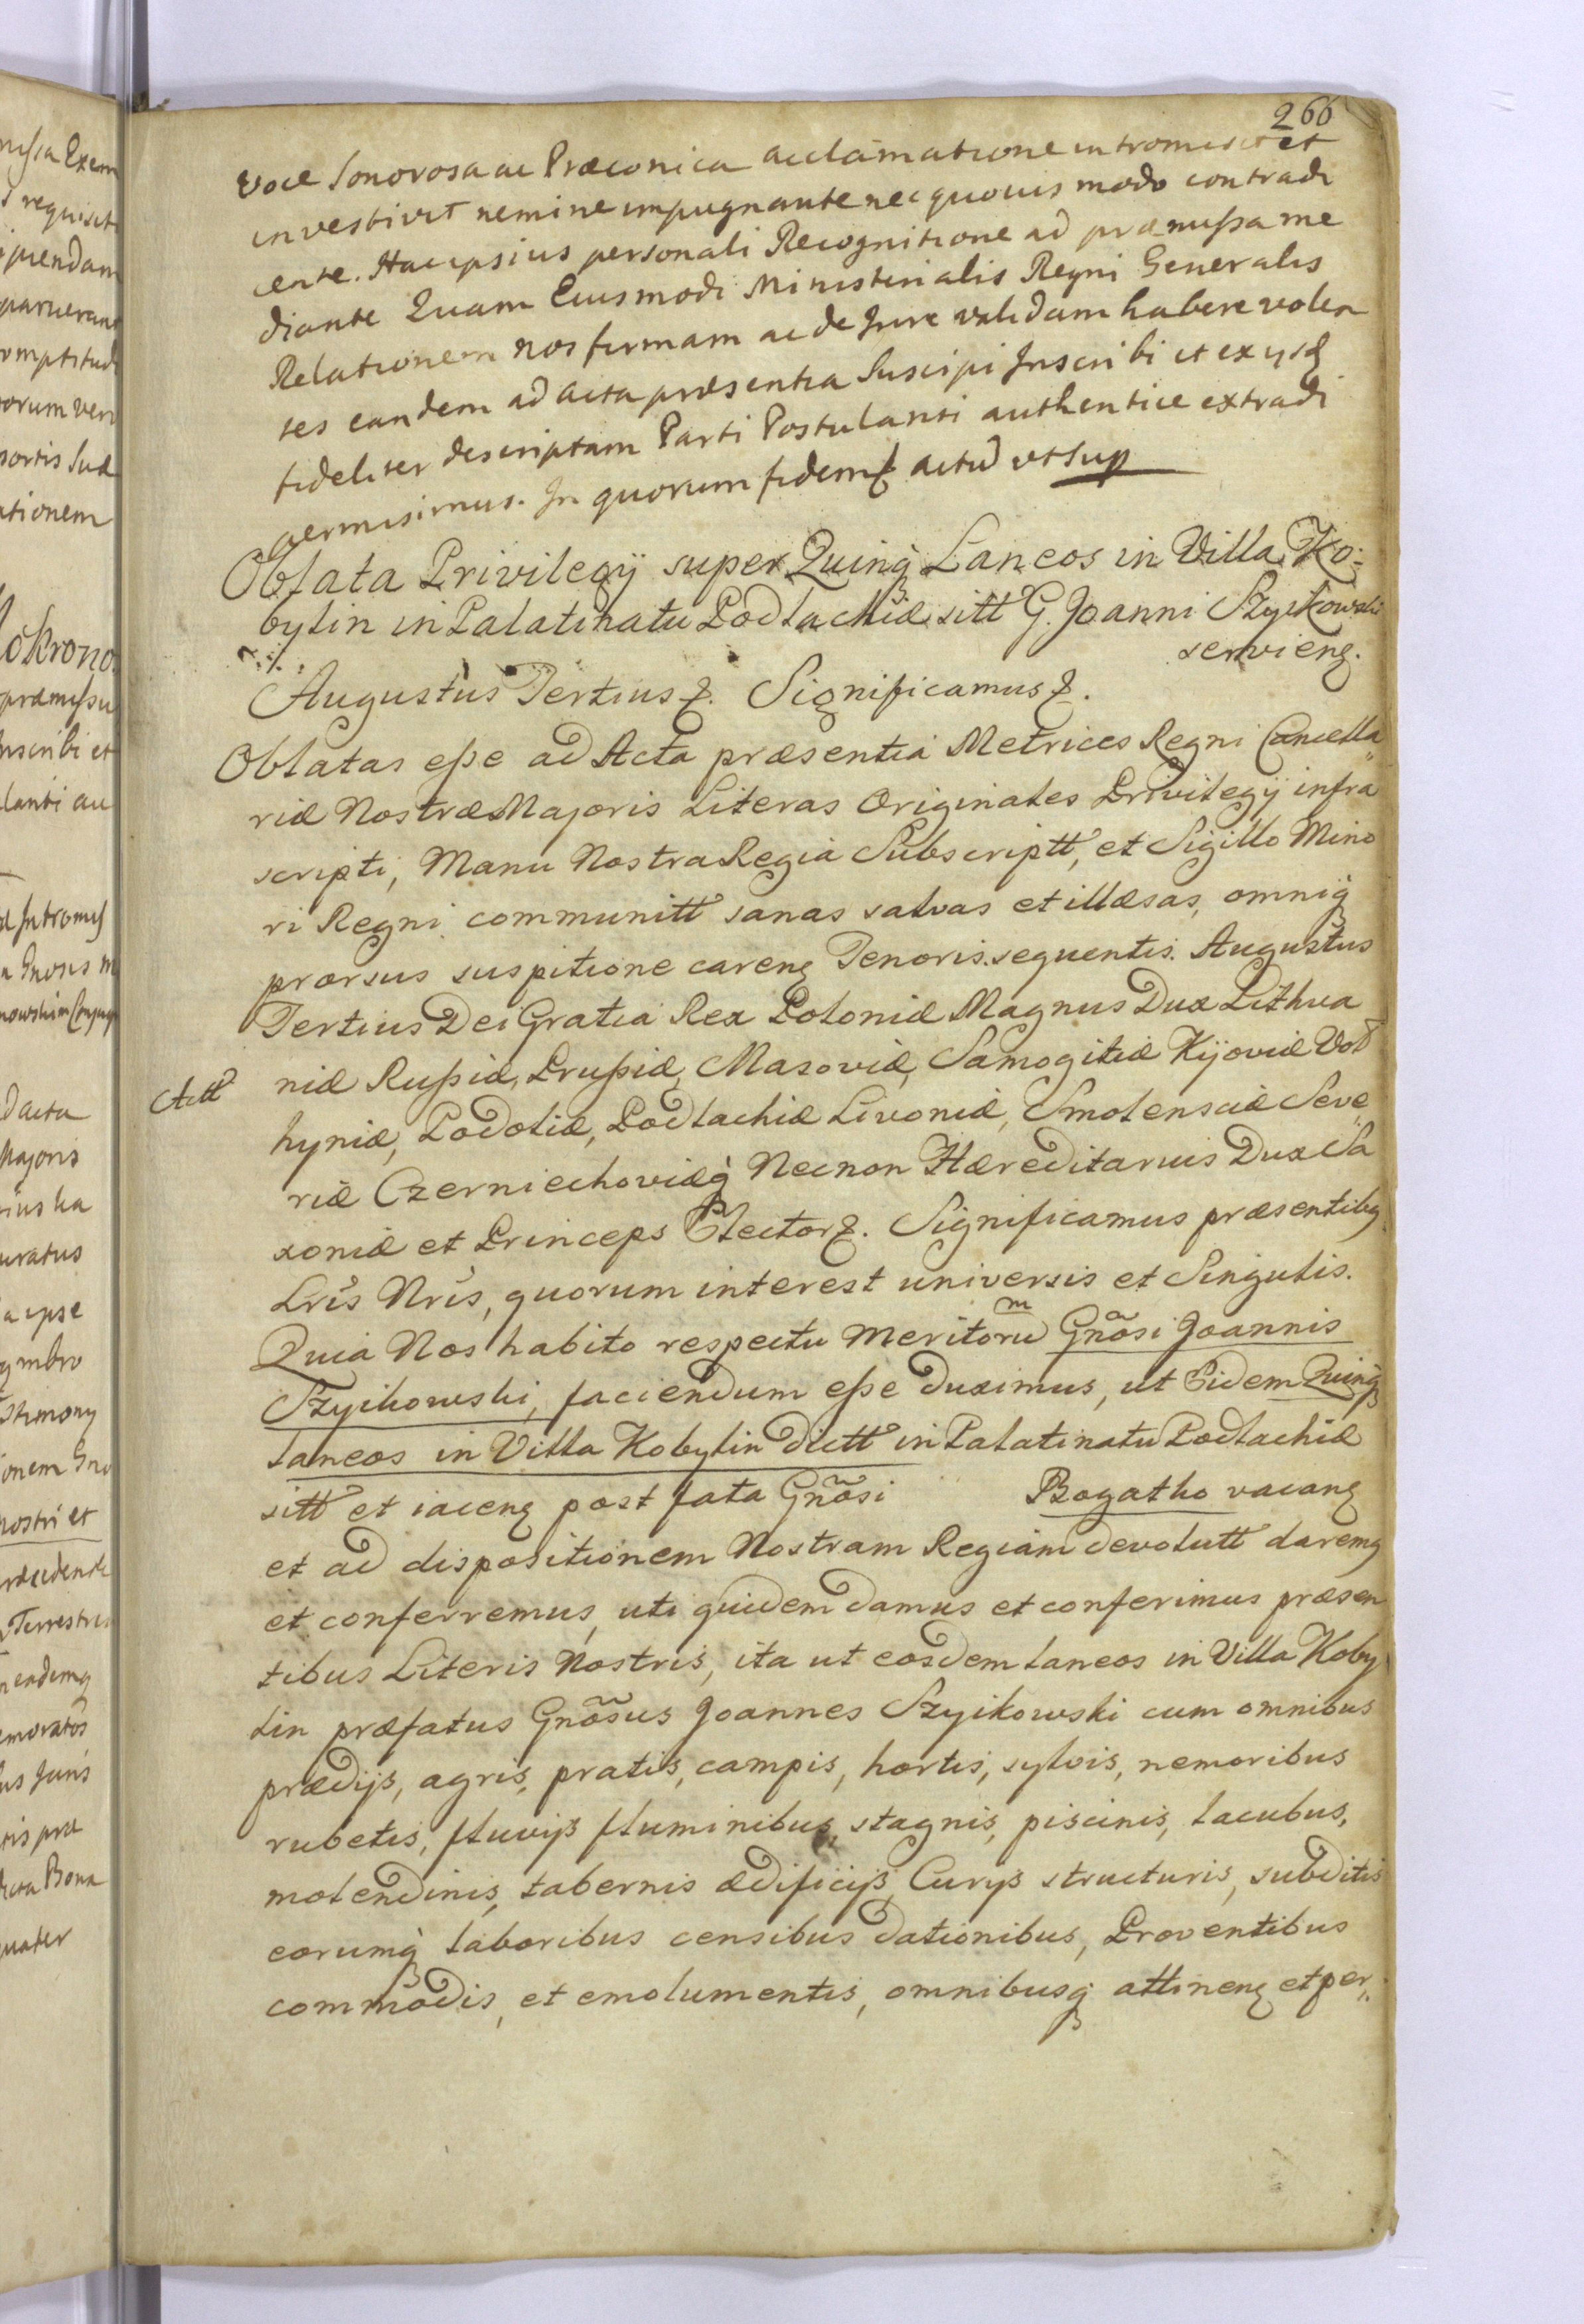 266
voce Sonorosa ac Præconica acclamatione intromisit et
investivit nemine impugnante nec quovis modo contradi
cente. Hac ipsius personali Recognitione ad præmissa me
diante Quam Eiusmodi Ministerialis Regni Generalis
Relationem nos firmam ac de Jure validam habere volen
tes eandem ad acta præsentia Suscipi Inscribi et ex ijsd
fideliter descriptam Parti Postulanti authentice extradi
permisimus. In quorum fidem &. actu ut sup
Oblata Privilegij super Quinq Laneos in Villa Ko:
bylin in Palatinatu Podlachiæ sitt G. Joanni Szyikowski
servieng.
Augustus Tertius &. Significamus &.
Oblatas esse ad Acta præsentia Metrices Regni Cancella
riæ Nostræ Majoris Literas Originales Privilegij infra
scripti, Manu Nostra Regia Subscriptt, et Sigillo Mino
ri Regni communitt sanas salvas et illæsas, omniq
prorsus suspitione careng Tenoris sequentis. Augustus
Tertius Dei Gratia Rex Poloniæ Magnus Dux Lithua
Actt
niæ Russiæ, Prussiæ, Masoviæ, Samogitiæ Kijoviæ Vol
hyniæ, Podoliæ, Podlachiæ Livoniæ, Smolensciæ Seve
riæ Czerniechoviæq Necnon Hæreditarius Dux Sa
xoniæ et Princeps Elector &. Significamus præsentibq
Lris Nris, quorum interest universis et Singulis.
Quia Nos habito respectu meritorum Gnosi Joannis
Szyikowski, faciendum esse duximus, ut Eidem Quinq
laneos in Villa Kobylin dictt in Palatinatu Podlachiæ
sitt et iaceng post fata Gnosi Bogatko vacang
et ad dispositionem Nostram Regiam devolutt daremq
et conferremus, uti quidem damus et conferimus præsen
tibus Literis Nostris, ita ut eosdem laneos in Villa Koby
lin præfatus Gnosus Joannes Szyikowski cum omnibus
prædijs, agris, pratis, campis, hortis, sylvis, nemoribus
rubetis, fluvijs fluminibus, stagnis, piscinis, lacubus,
molendinis, tabernis ædificijs, Curijs structuris, subditis
eorumq laboribus censibus dationibus, Proventibus
commodis, et emolumentis, omnibusq attineng et per,,